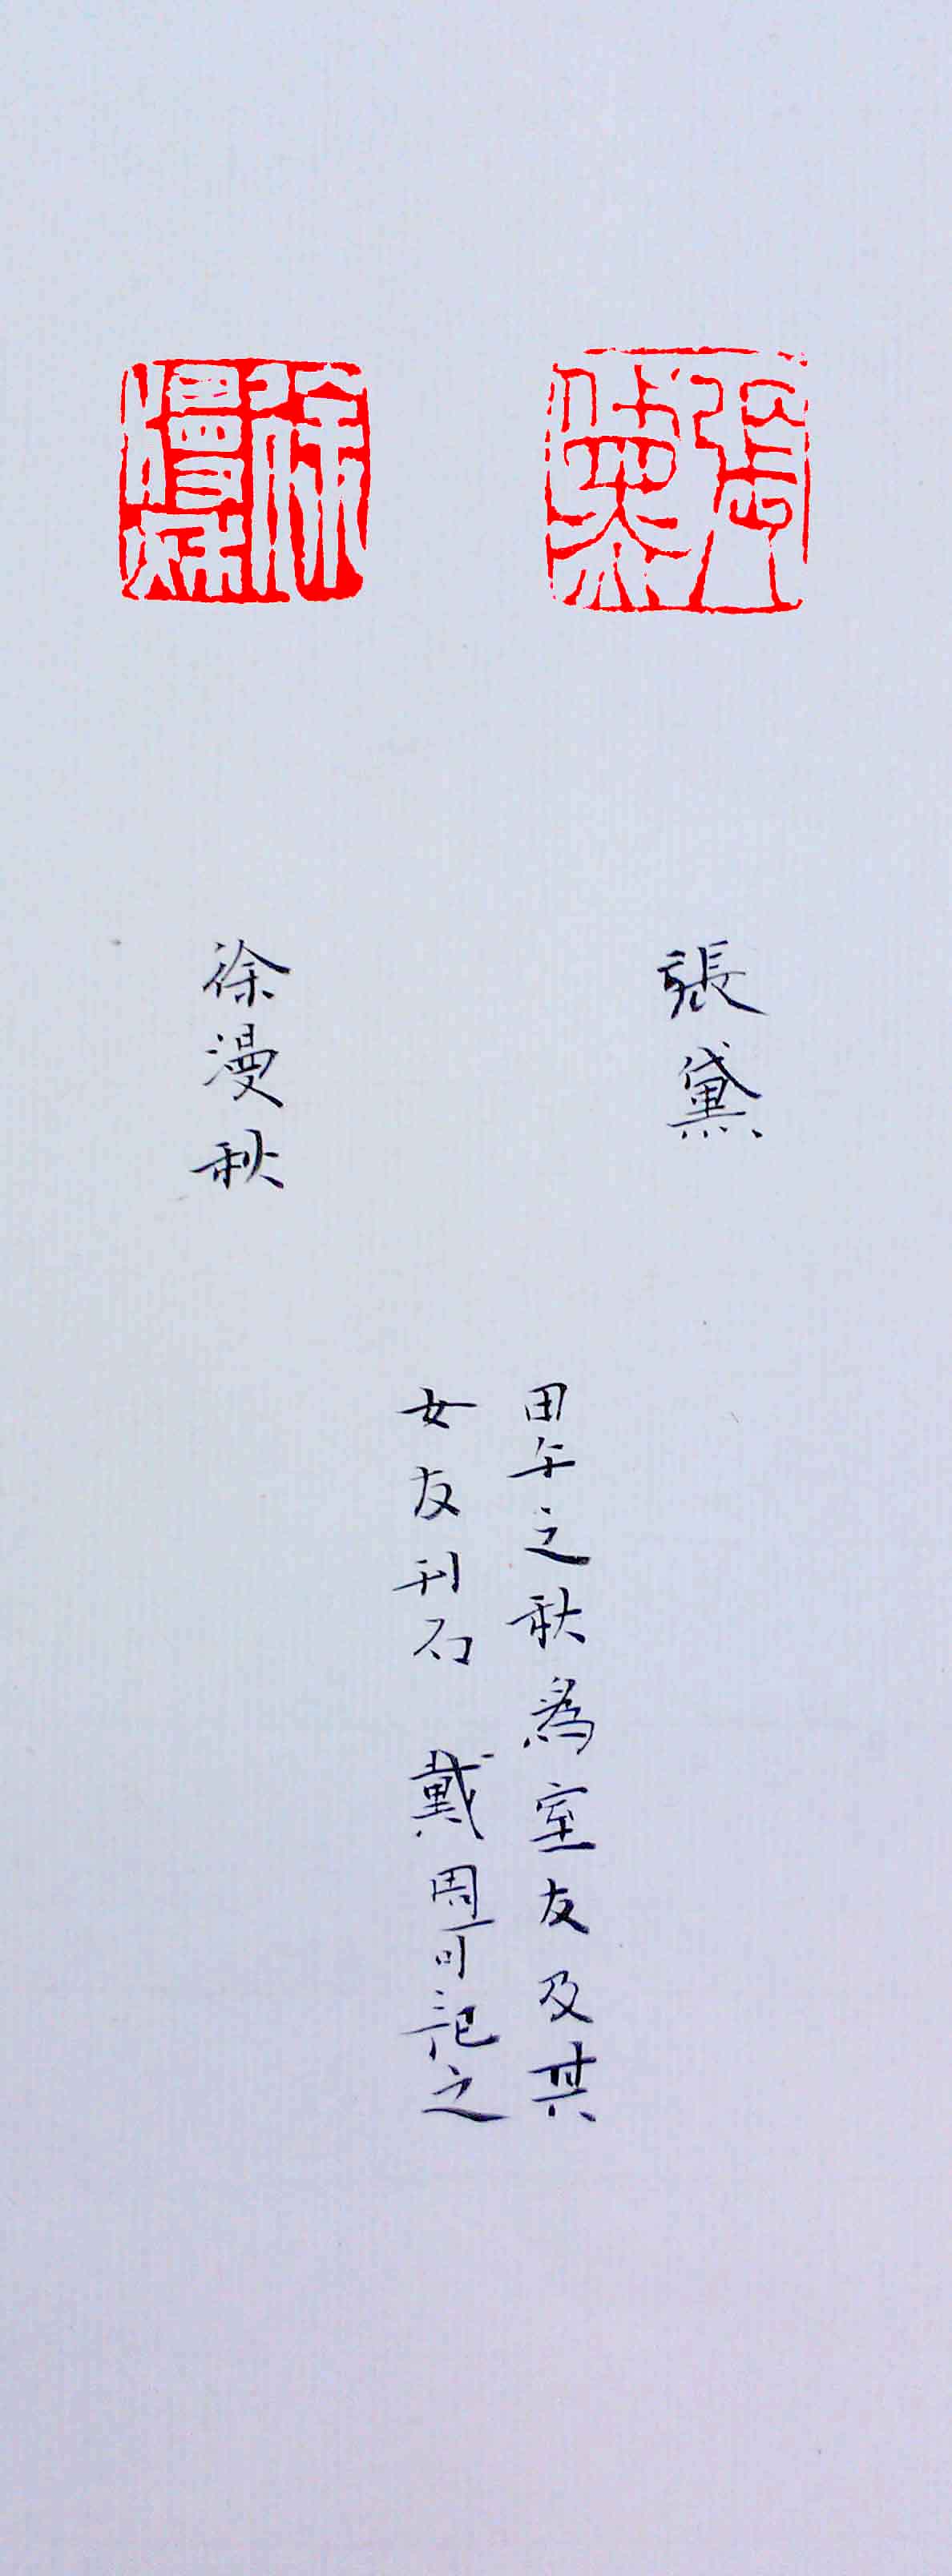 張黛
徐漫秋
張黛
徐漫秋
甲午之秋為室友及其
女友刊石 戴周可記之